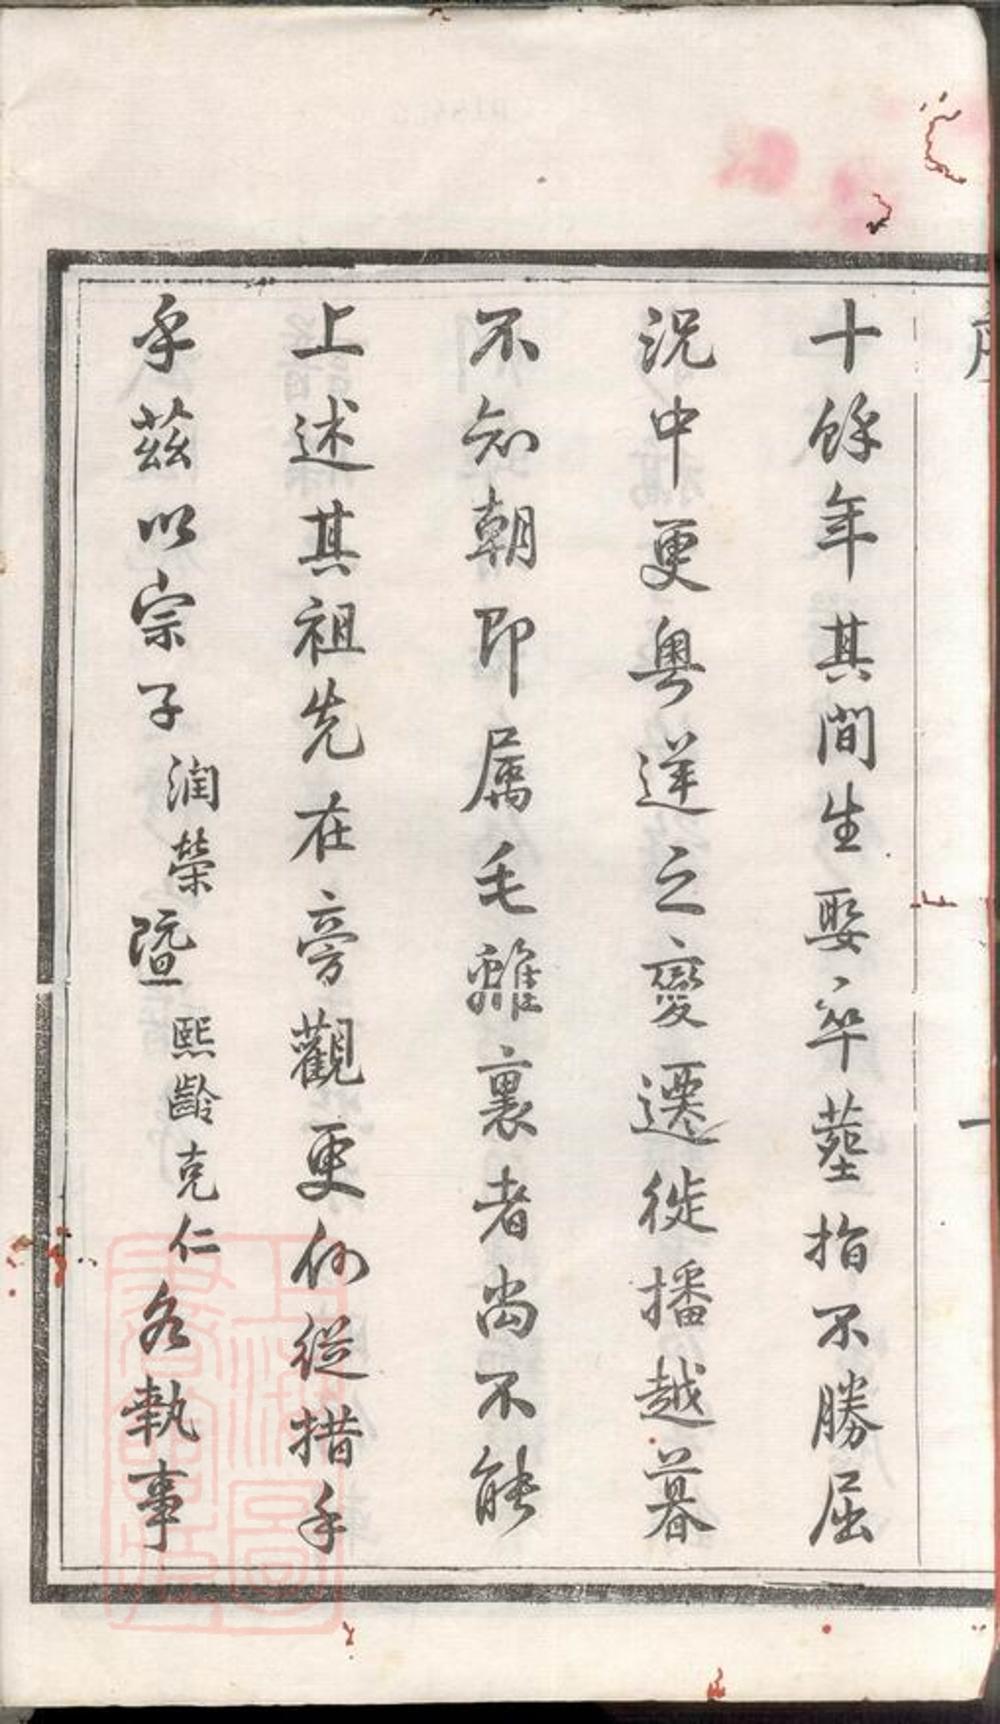 十餘年其間生娶卒塟指不勝屈
況中更粤逆之變遷徙播越暮
不知朝即属毛離裏者尚不能
上述其祖先在旁觀更何從措手
乎茲以宗子潤榮暨熙齡克仁各執事